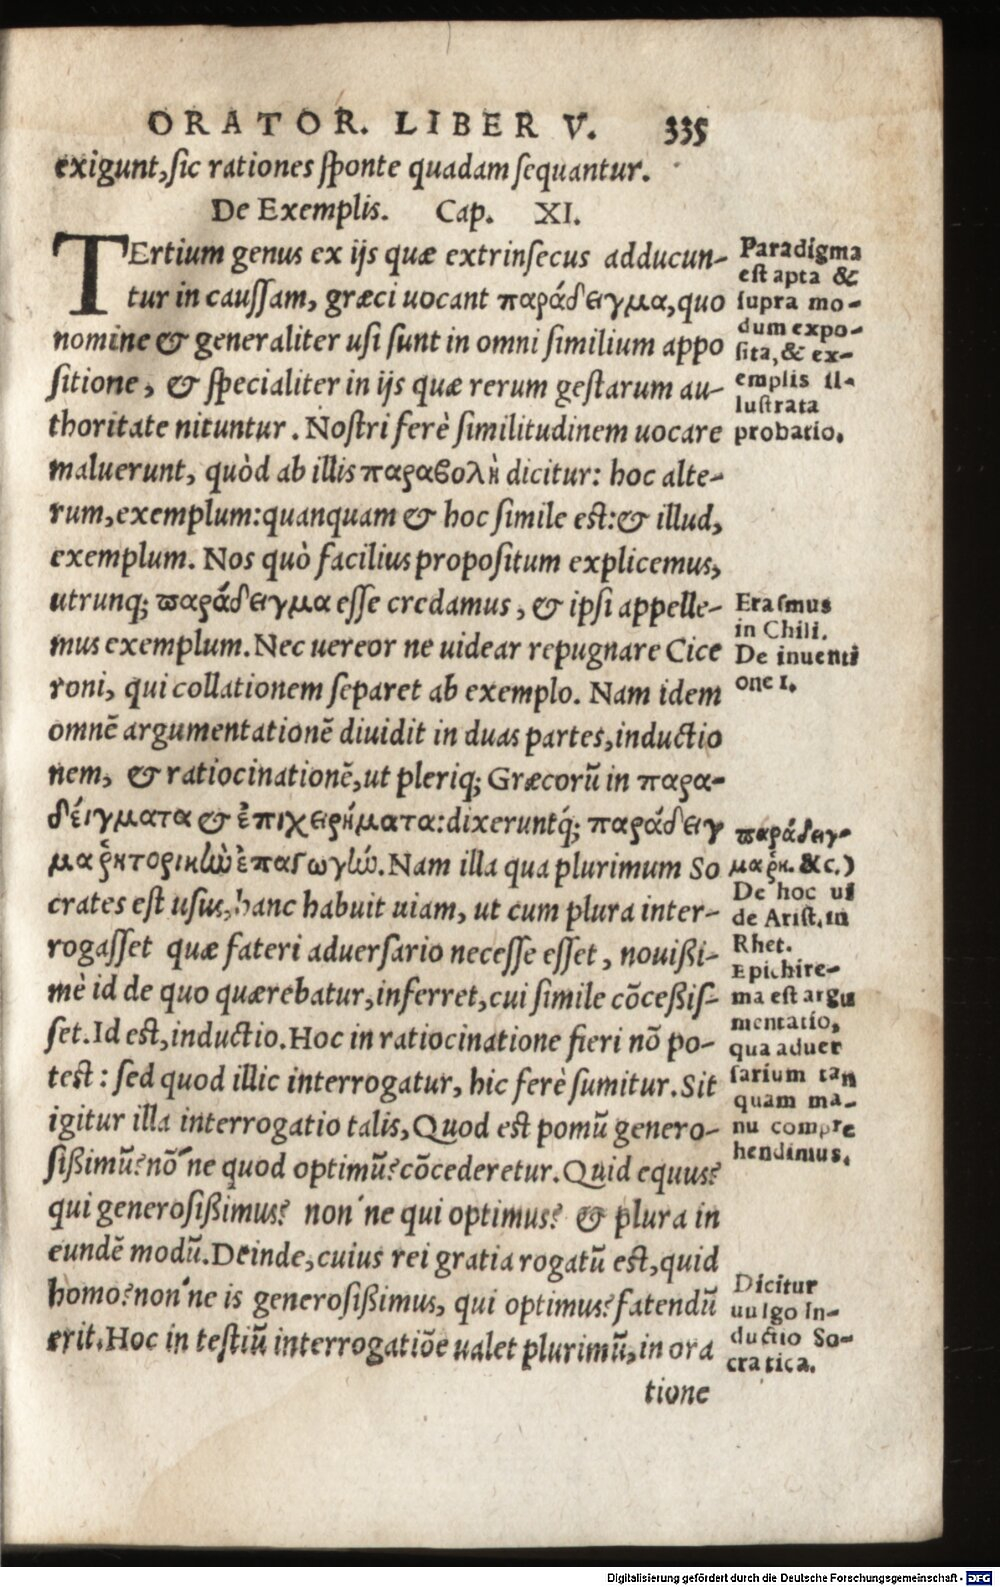 ORATOR. LIBER V. 335
exigunt, sic rationes sponte quadam sequantur.
De Exemplis. Cap. XI.
TErtium genus ex ijs quæ extrinsecus adducun-
tur in caussam, græci uocant παράδειγμα, quo
nomine & generaliter usi sunt in omni similium appo
sitione, & specialiter in ijs quæ rerum gestarum au-
thoritate nituntur. Nostri ferè similitudinem uocare
maluerunt, quòd ab illis παραβολὴ dicitur: hoc alte-
rum, exemplum: quanquam & hoc simile est: & illud,
exemplum. Nos quò facilius propositum explicemus,
utrunq; παράδειγμα esse credamus, & ipsi appelle-
mus exemplum. Nec uereor ne uidear repugnare Cice
roni, qui collationem separet ab exemplo. Nam idem
omnē argumentationē diuidit in duas partes, inductio
nem, & ratiocinationē, ut pleriq; Græcorū in παρα-
δείγματα & ἐπιχειρήματα: dixeruntq́; παράδειγ
μα ῥητορικὴν ἐπαγωγήν. Nam illa qua plurimum So
crates est usus, hanc habuit uiam, ut cum plura inter-
rogasset quæ fateri aduersario necesse esset, nouißi-
mè id de quo quærebatur, inferret, cui simile cōceßis-
set. Id est, inductio. Hoc in ratiocinatione fieri nō po-
test: sed quod illic interrogatur, hic ferè sumitur. Sit
igitur illa interrogatio talis, Quod est pomū genero-
sißimū? nō ne quod optimū? cōcederetur. Quid equus?
qui generosißimus? non ne qui optimus? & plura in
eundē modū. Deinde, cuius rei gratia rogatū est, quid
homo? non ne is generosißimus, qui optimus? fatendū
erit. Hoc in testiū interrogatiōe ualet plurimū, in ora
tione
Paradigma
est apta &
supra mo-
dum expo-
sita, & ex-
emplis il-
lustrata
probatio.
Erasmus
in Chili.
De inuenti
one 1.
παράδειγ-
μα ῥη. &c.)
De hoc ui
de Arist. in
Rhet.
Epichire-
ma est argu
mentatio,
qua aduer
sarium tan
quam ma-
nu compre
hendimus.
Dicitur
uulgo In-
ductio So-
cratica.
Digitalisierung gefördert durch die Deutsche Forschungsgemeinschaft - DFG